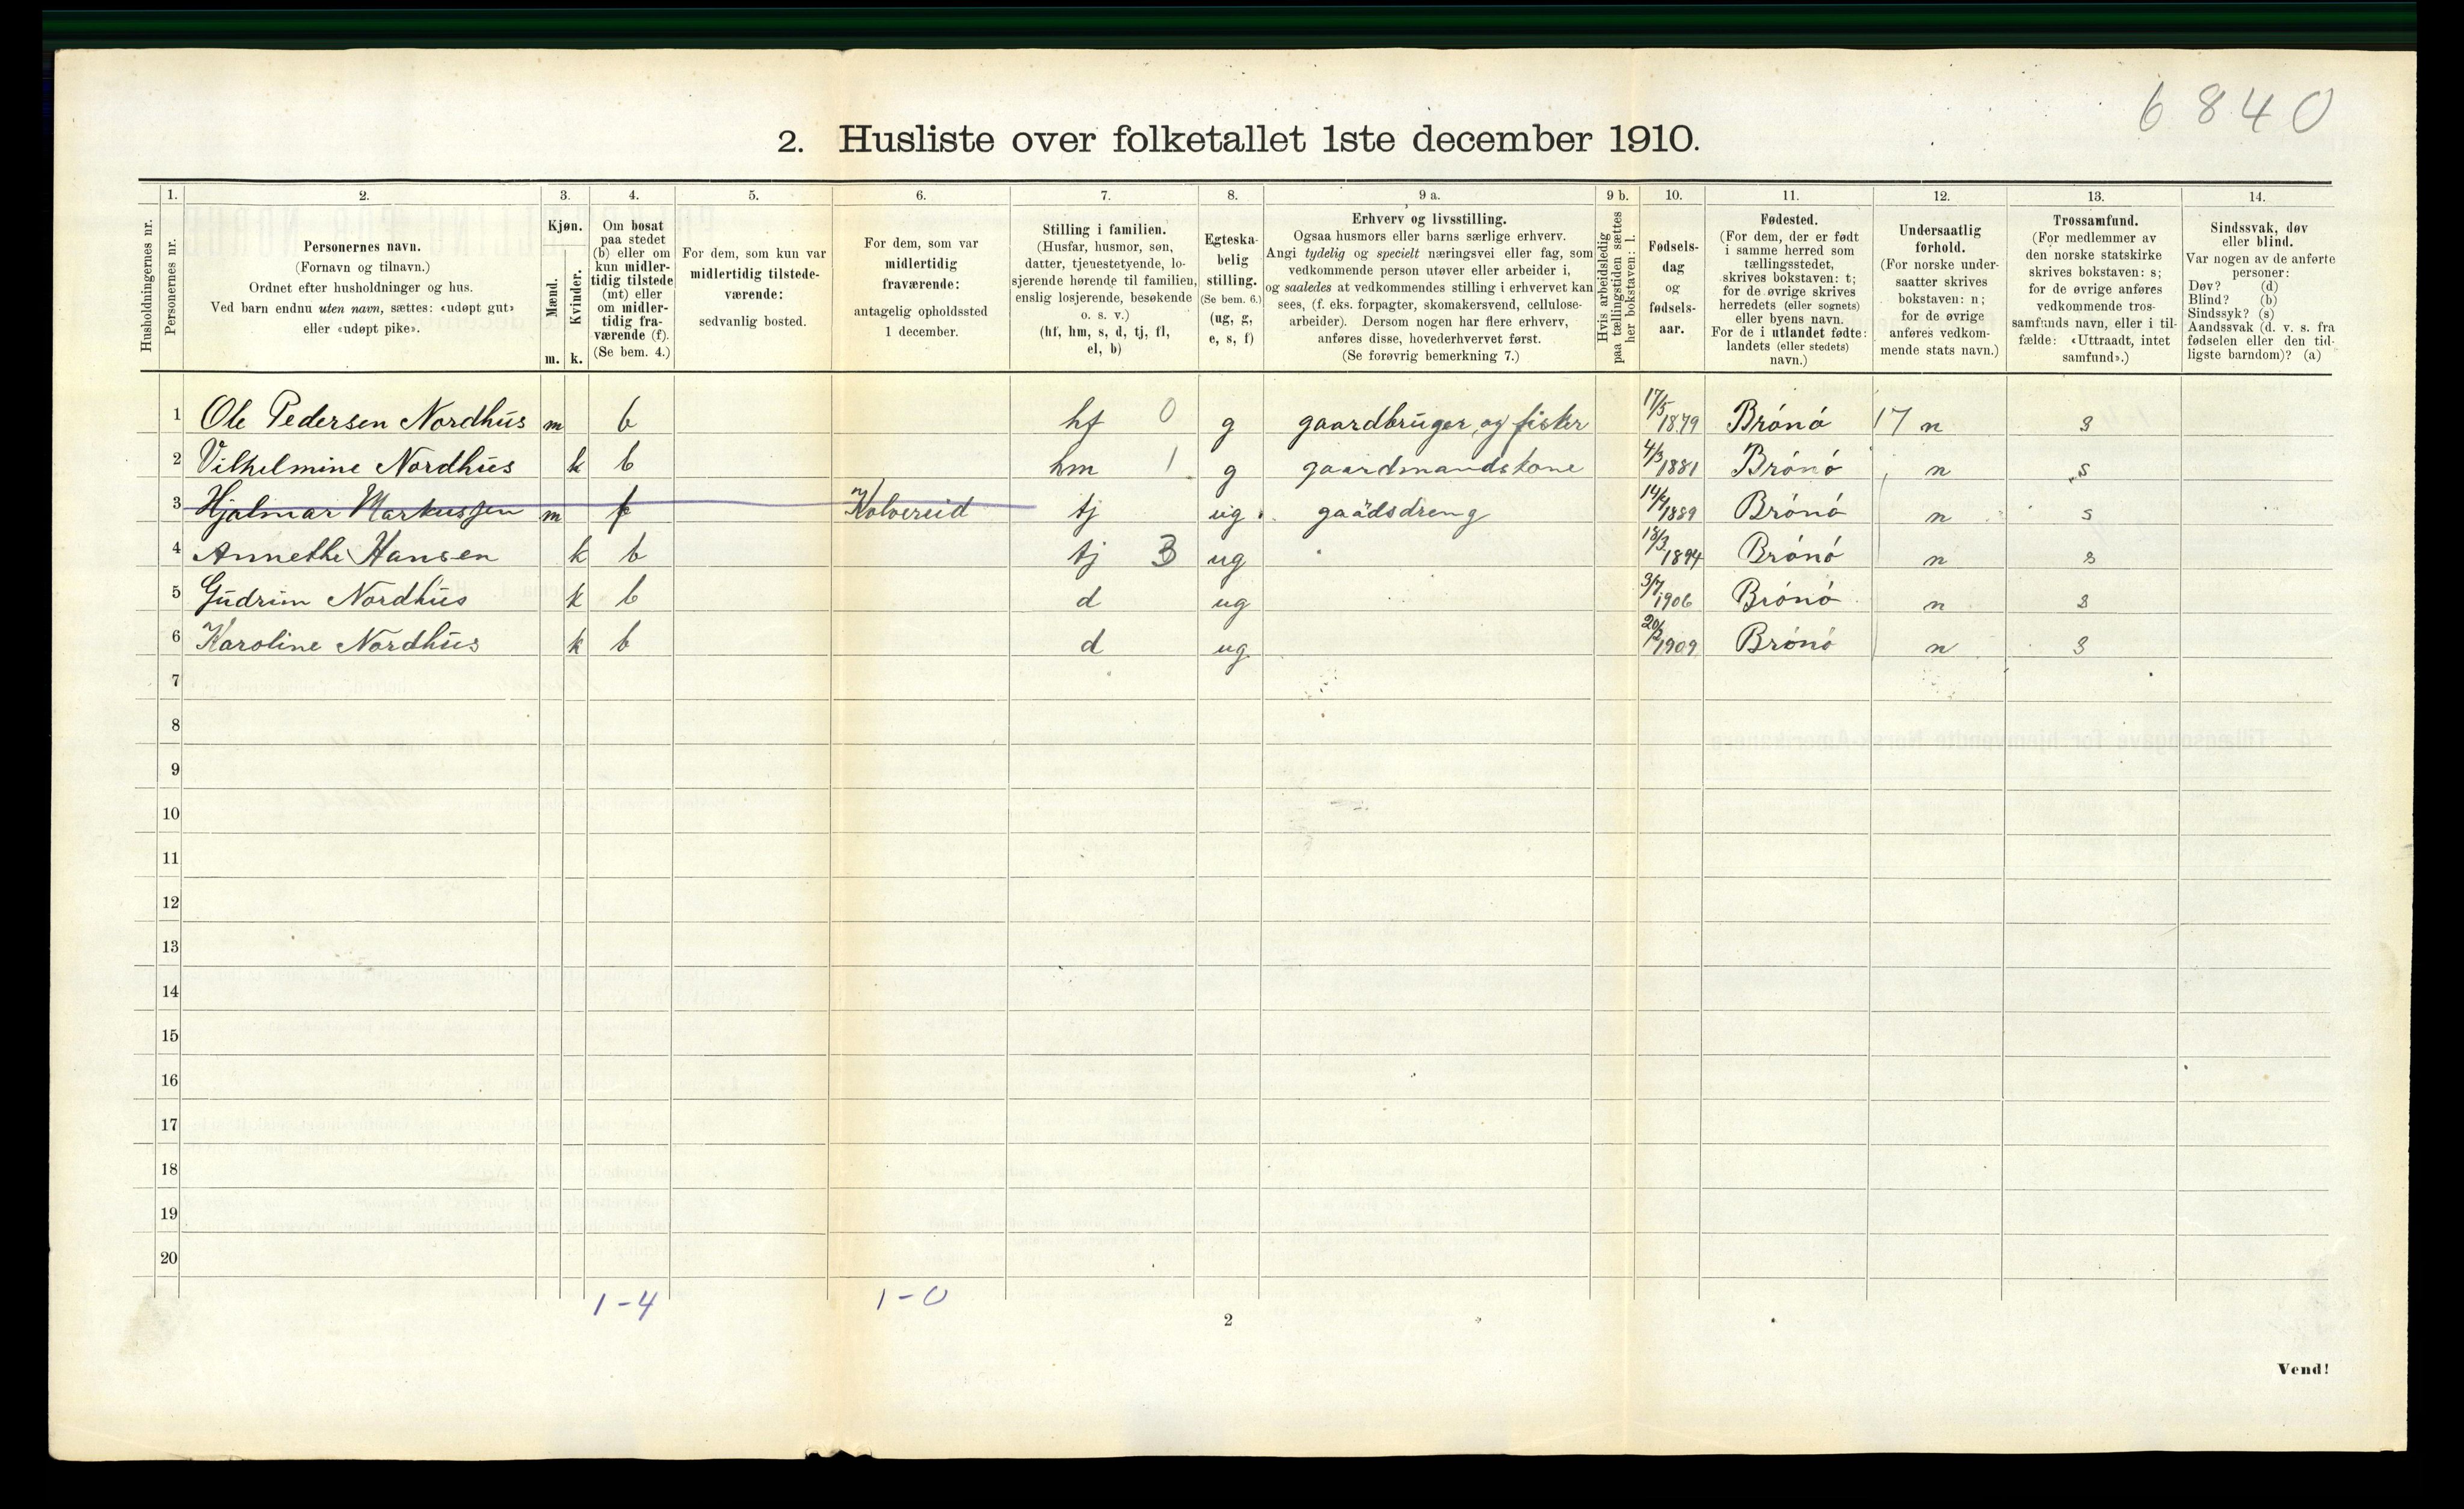 6840
2. Husliste over folketallet 1ste december 1910.
Husholdningernes nr.
1. Personernes nr.
2. Personernes navn.
(Fornavn og tilnavn.)
Ordnet efter husholdninger og hus.
Ved barn endnu uten navn, sættes: «udøpt gut»
eller «udøpt pike».
3. Kjøn.
Mænd. m.
Kvinder. k.
4. Om bosat
paa stedet
(b) eller om
kun midler-
tidig tilstede
(mt) eller
om midler-
tidig fra-
værende (f).
(Se bem. 4.)
5. For dem, som kun var
midlertidig tilstede-
værende:
sedvanlig bosted.
6. For dem, som var
midlertidig
fraværende:
antagelig opholdssted
1 december.
7. Stilling i familien.
(Husfar, husmor, søn,
datter, tjenestetyende, lo-
sjerende hørende til familien,
enslig losjerende, besøkende
o. s. v.)
(hf, hm, s, d, tj, fl,
el, b)
8. Egteska-
belig
stilling.
(Se bem. 6.)
(ug, g,
e, s, f)
9 a. Erhverv og livsstilling.
Ogsaa husmors eller barns særlige erhverv.
Angi tydelig og specielt næringsvei eller fag, som
vedkommende person utøver eller arbeider i,
og saaledes at vedkommendes stilling i erhvervet kan
sees, (f. eks. forpagter, skomakersvend, cellulose-
arbeider). Dersom nogen har flere erhverv,
anføres disse, hovederhvervet først.
(Se forøvrig bemerkning 7.)
9 b. Hvis arbeidsledig
paa tællingstiden sættes
her bokstaven: l.
10. Fødsels-
dag
og
fødsels-
aar.
11. Fødested.
(For dem, der er født
i samme herred som
tællingsstedet,
skrives bokstaven: t;
for de øvrige skrives
herredets (eller sognets)
eller byens navn.
For de i utlandet fødte:
landets (eller stedets)
navn.)
12. Undersaatlig
forhold.
(For norske under-
saatter skrives
bokstaven: n;
for de øvrige
anføres vedkom-
mende stats navn.)
13. Trossamfund.
(For medlemmer av
den norske statskirke
skrives bokstaven: s;
for de øvrige anføres
vedkommende tros-
samfunds navn, eller i til-
fælde: «Uttraadt, intet
samfund».)
14. Sindssvak, døv
eller blind.
Var nogen av de anførte
personer:
Døv? (d)
Blind? (b)
Sindssyk? (s)
Aandssvak (d. v. s. fra
fødselen eller den tid-
ligste barndom)? (a)
1 Ole Pedersen Nordhus m b hf 0 g gaardbruger og fisker 17/5 1879 Brönö 17 n s
2 Vilhelmine Nordhus k b hm 1 g gaardmandskone 4/3 1881 Brönö n s
3 Hjalmar Markussen m f Kolvereid tj ug gaädsdreng 14/4 1889 Brönö n s
4 Annethe Hansen k b tj 3 ug 18/3 1894 Brönö n s
5 Gudrun Nordhus k b d ug 3/7 1906 Brönö n s
6 Karoline Nordhus k b d ug 20/2 1909 Brönö n s
7
8
9
10
11
12
13
14
15
16
17
18
19
20
1-4 1-0
2
Vend!